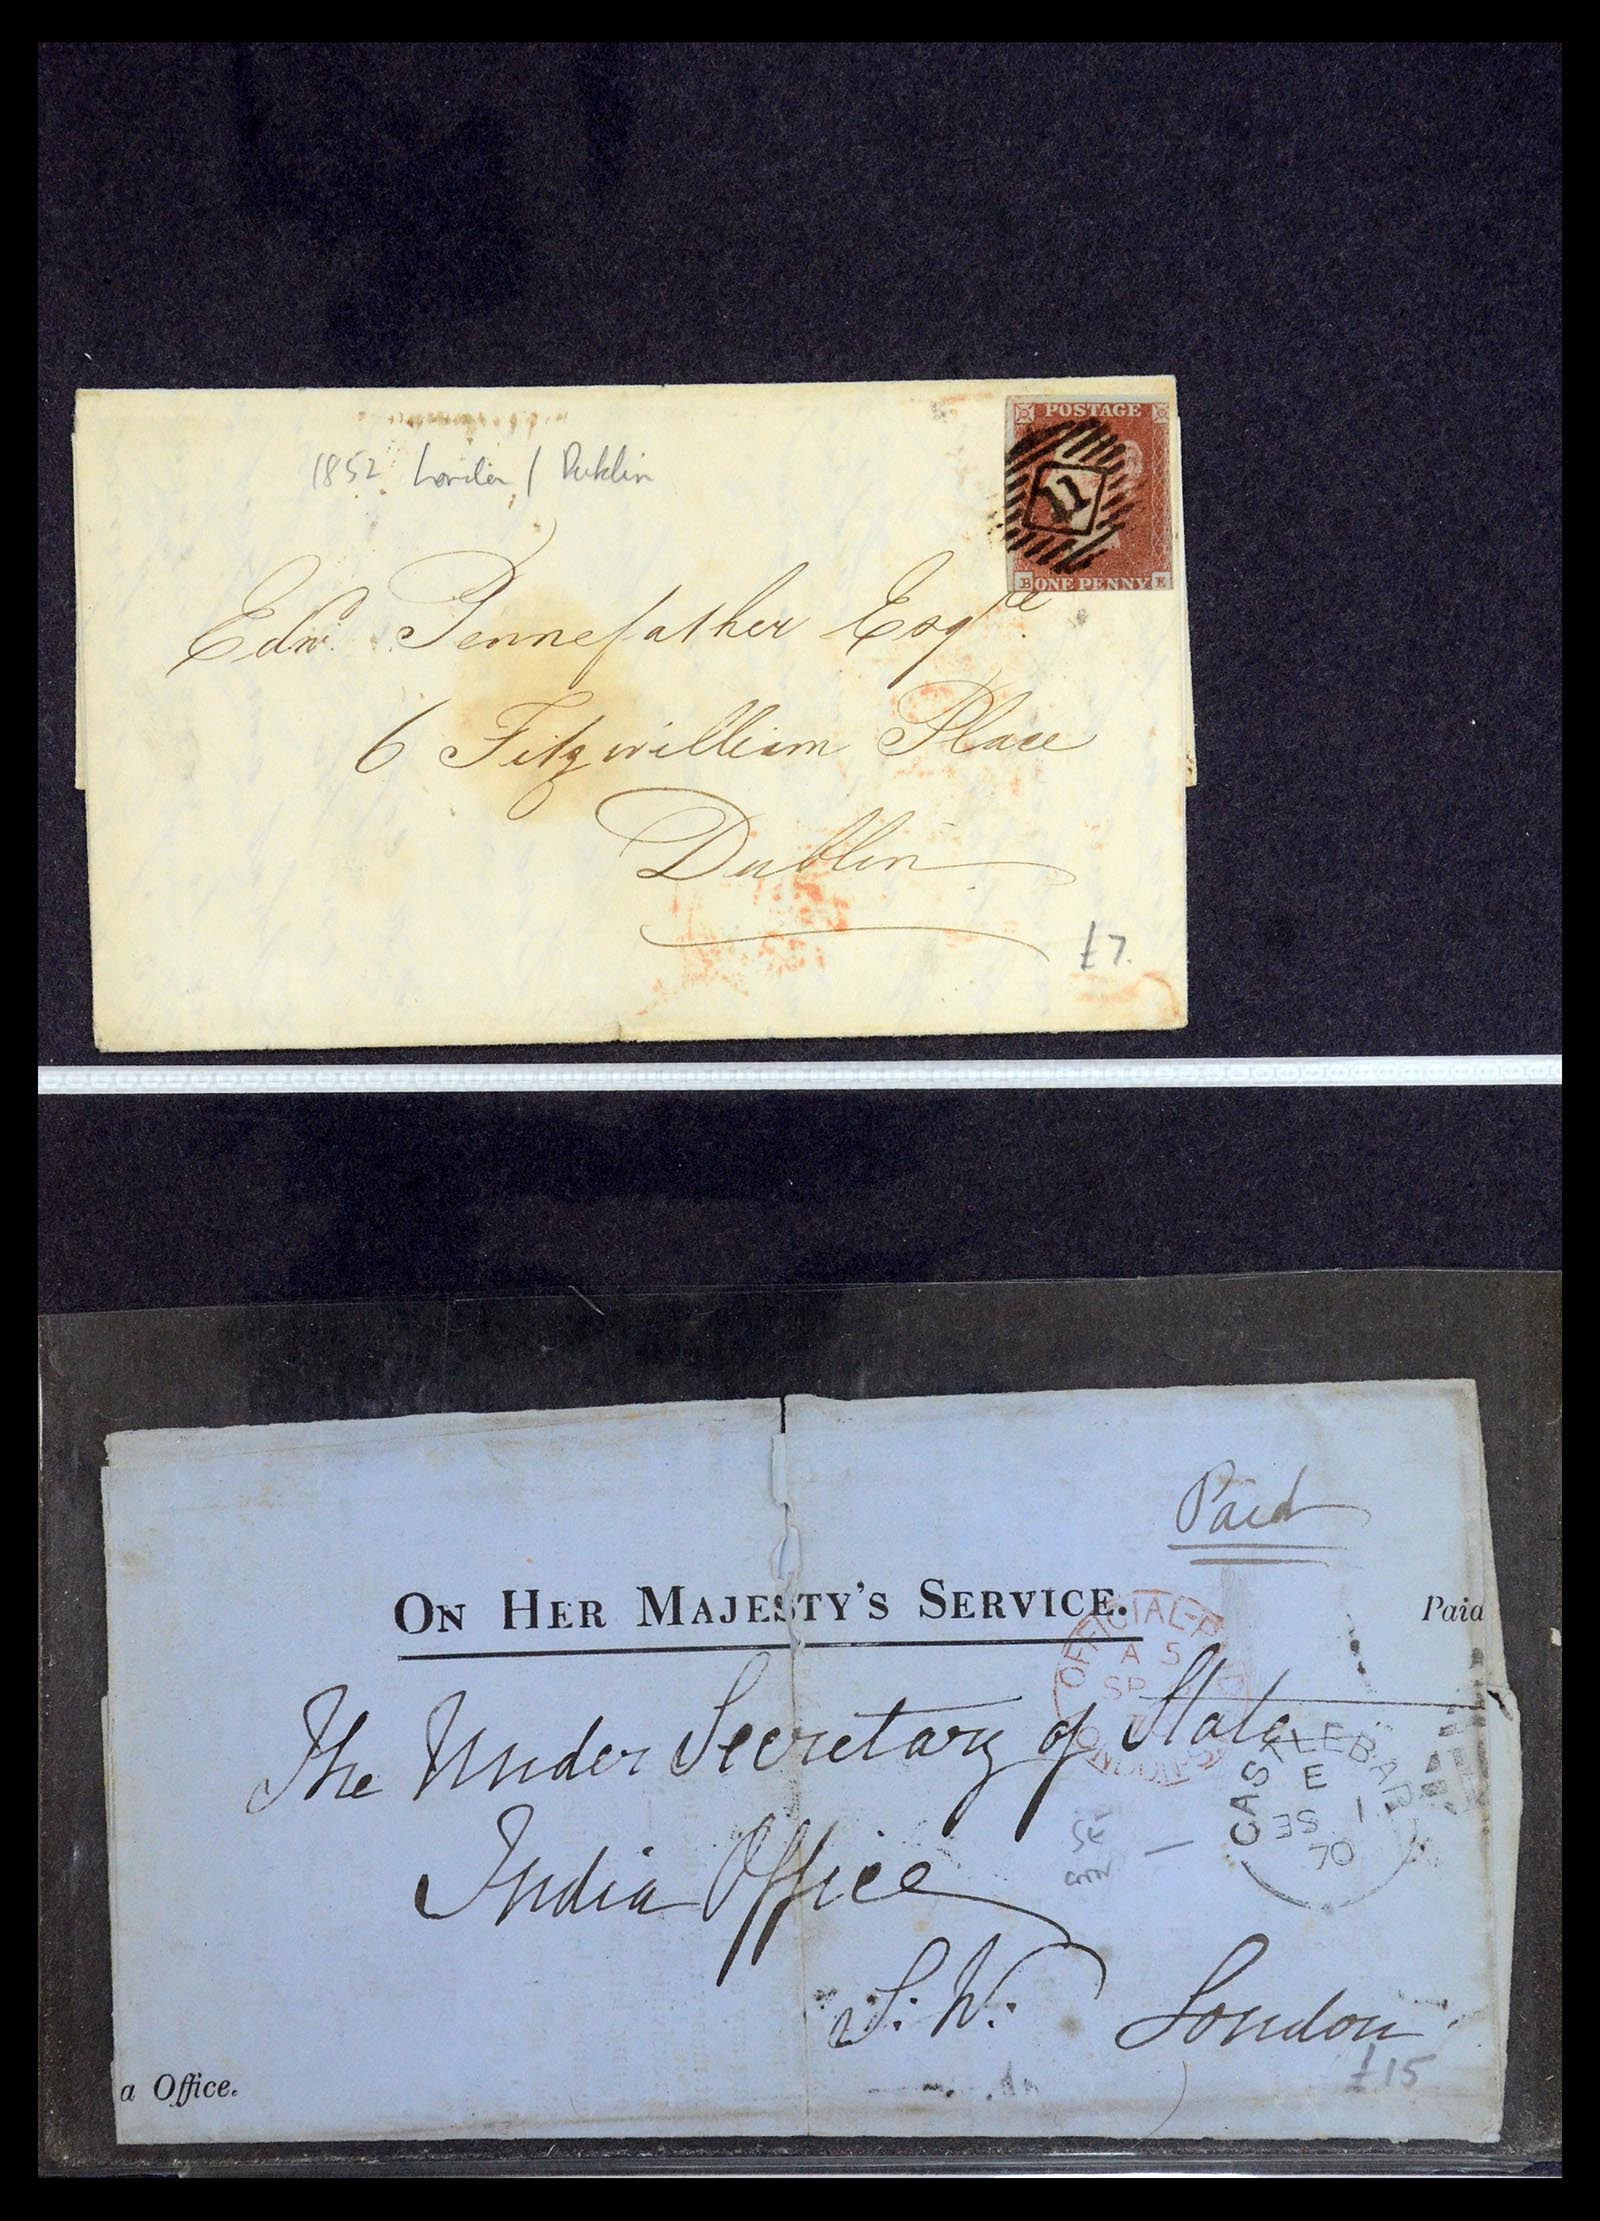 1852 London / Dublin
POSTAGE
11
B ONE PENNY E
Edwd. Pennefather Esqre.
6 Fitzwilliam Place
Dublin
£7.
Paid
ON HER MAJESTY'S SERVICE.
Paid
OFFICIAL-P
A 5
SP
The Under Secretary of State
CASTLEBAR
E
1 SE
70
India Office
S. W. London
£15
a Office.